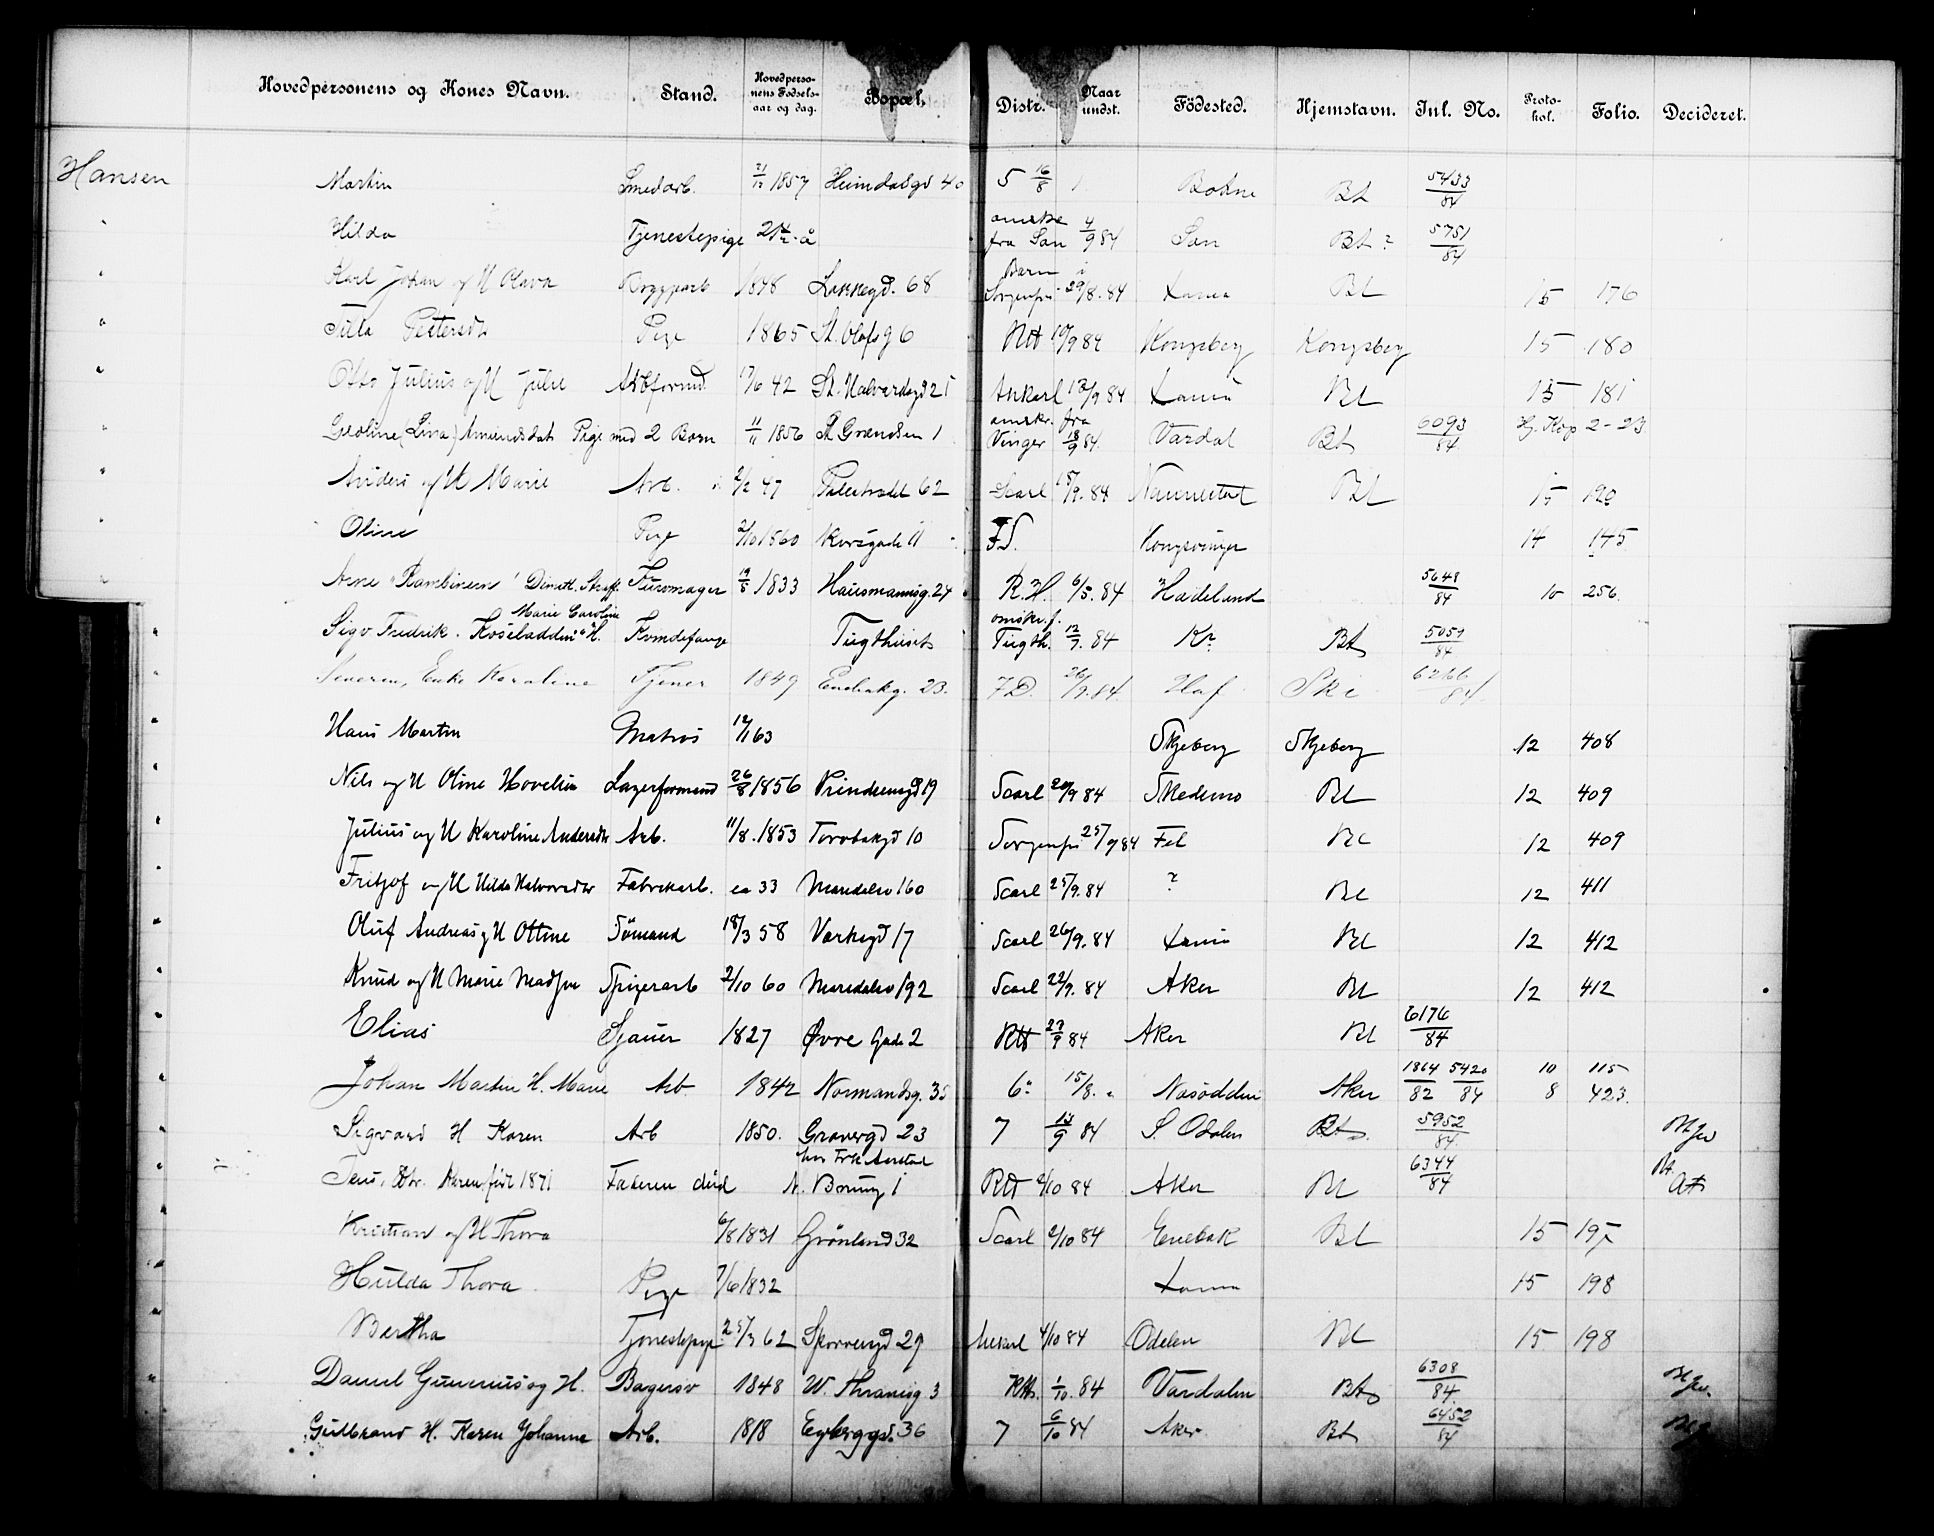 Hovedpersonens og Kones Navn. Stand. Hovedpersonens Fødselsaar og dag. Bopæl. Distr. Naar undst. Födested. Hjemstavn. Inl. No. Protokol. Folio. Decideret.
Hansen Martin Smedarb. 21/12 1857 Heimdalsgd 40 5 16/8 Bt 5433/84
" Hilda Tjenestepige 21 1/2 å ønske fra Son 4/9 84 Son Bt ? 5751/84
" Karl Johan og H Olava Bryggearb 1848 Lakkegd. 68 Barn i Sorgenfri 29/8. 84 Xania Bt 15 176
" Petersdt Pige 1865 St. Olafsg 6 Rtt 10/9 84 Kongsberg Kongsberg 15 180
" Otto Julius og H Julie Arbformd. 17/6 42 St. Halvardsgd 21 Ankerl 12/9 84 Xania Bt 15 181
" Geoline (Lina) Amundsdat Pige med 2 Barn 11/11 1856 St Grændsen 1 ønskr. fra Vinger 18/9 84 Vardal Bt 6093/84 Hj. Kop 2-23.
" Anders og H Marie Arb. 2/2 47 62 Scarl 15/9. 84 Nannestad Bt 15 190
" Oline Pige 2/10 1860 Korsgade 11 FS. Kongsvinger 14 145
" Arne "Rambinern" Dimitt. Straff. Furomager 19/5 1833 Hausmannsg. 24 R.H. 6/5. 84 Hadeland 5648/84 10 256.
" Sigv. Fredrik. Koseladden" H. Marie Caroline Kvindefange Tugthuset ønskr. f. Tugth. 12/7. 84 Kr? Bt 5051/84
" Severin, Enke Karoline Tjener 1849 Enebakg. 23. 7D. 26/9. 84. Ski 6266/84.
" Hans Martin Matros 12/1 63 Skjeberg Skjeberg 12 408
" Nils og H Oline Hovelsen Lagerformand 26/8 1856 Prindsensgd 19 Scarl 20/9 84 Skedsmo Bt 12 409
" Julius og H Karoline Andersdtr Arb. 11/8. 1853 Torvbakgd 10 Sorgenfri 25/9 84 Fet Bt 12 409
" Fritjof og H Hilda Halvorsdtr Fabrikarb. ca 33 Maridalsv 160 Scarl 25/9. 84 ? Bt 12 411
" Oluf Andreas og H Ottine Sømand 18/3 58 Verksgd 17 Scarl 26/9. 84 Xania Bt 12 412
" Knud og H Marie Spigerarb 2/10 60 Maridalsv 192 Scarl 22/9. 84 Aker Bt 12 412
" Elias Sjauer 1827 Øvre Gade 2 Rtt 27/9 84 Aker Bt 6176/84
" Johan Martin H. Marie Arb 1842 Normandsg. 35 6" 15/8. " Næsodden Aker 1864/82 5420/84 10 8 115 423.
" Sigvard H Karen Arb 1850. Gravergd 23 7 13/9 84 S. Odalen Bt. 5952/84.
" Jens, Dtr. Karen født 1871 Faderen død hos N. Borrng 1 Rtt 2/10 84 Aker Bt 6344/84 Bt
" Kristian og H Thora 6/8 1831 Grönland 32 Scarl 2/10 84 Enebak Bt 15 197
" Hulda Thora Pige 7/6 1832 Xania 15 198
" Bertha Tjenestepige 25/3 62 Sporveisgd 29 Ankerl 4/10 84 Odalen Bt 15 198
" Daniel Gunerius og H. Bagersv 1848 W. Thranesg 3 Rtt. 1/10. 84 Vardalen Bt 6308/84.
" Gulbrand H. Karen Johanne Arb. 1818 Enebergsgd. 36 7 6/10 84 Aker Bt 6452/84